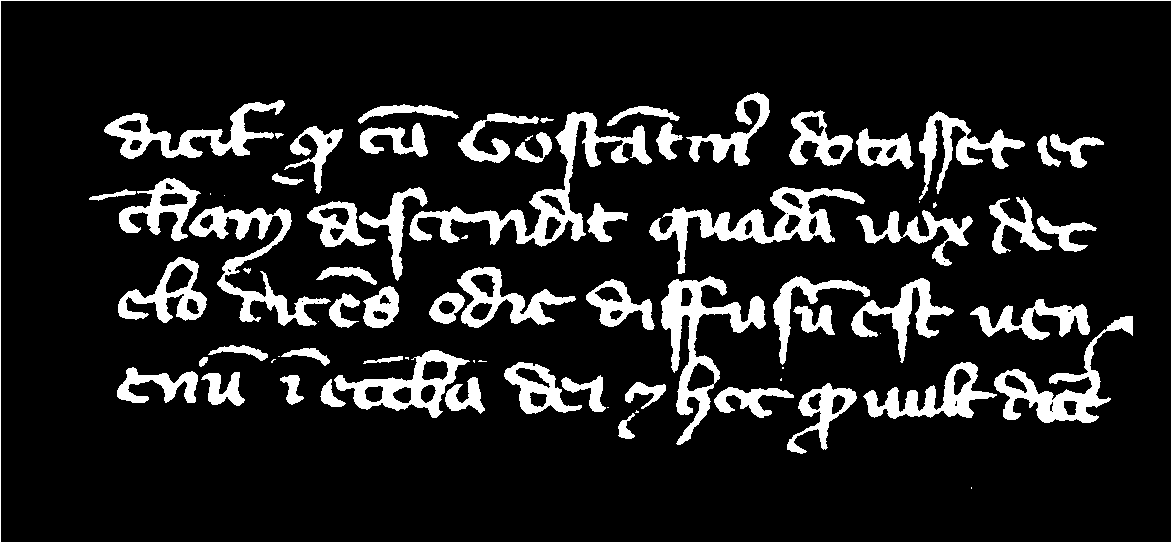 dicit̄ ꝙ cū Gostātinꝰ dotasset ec
cɦam descendit quadā uox de c
elo dicēs odie diffusū est uen
enū ī eccɦā dei ⁊ hoc ꝙ uult dicē